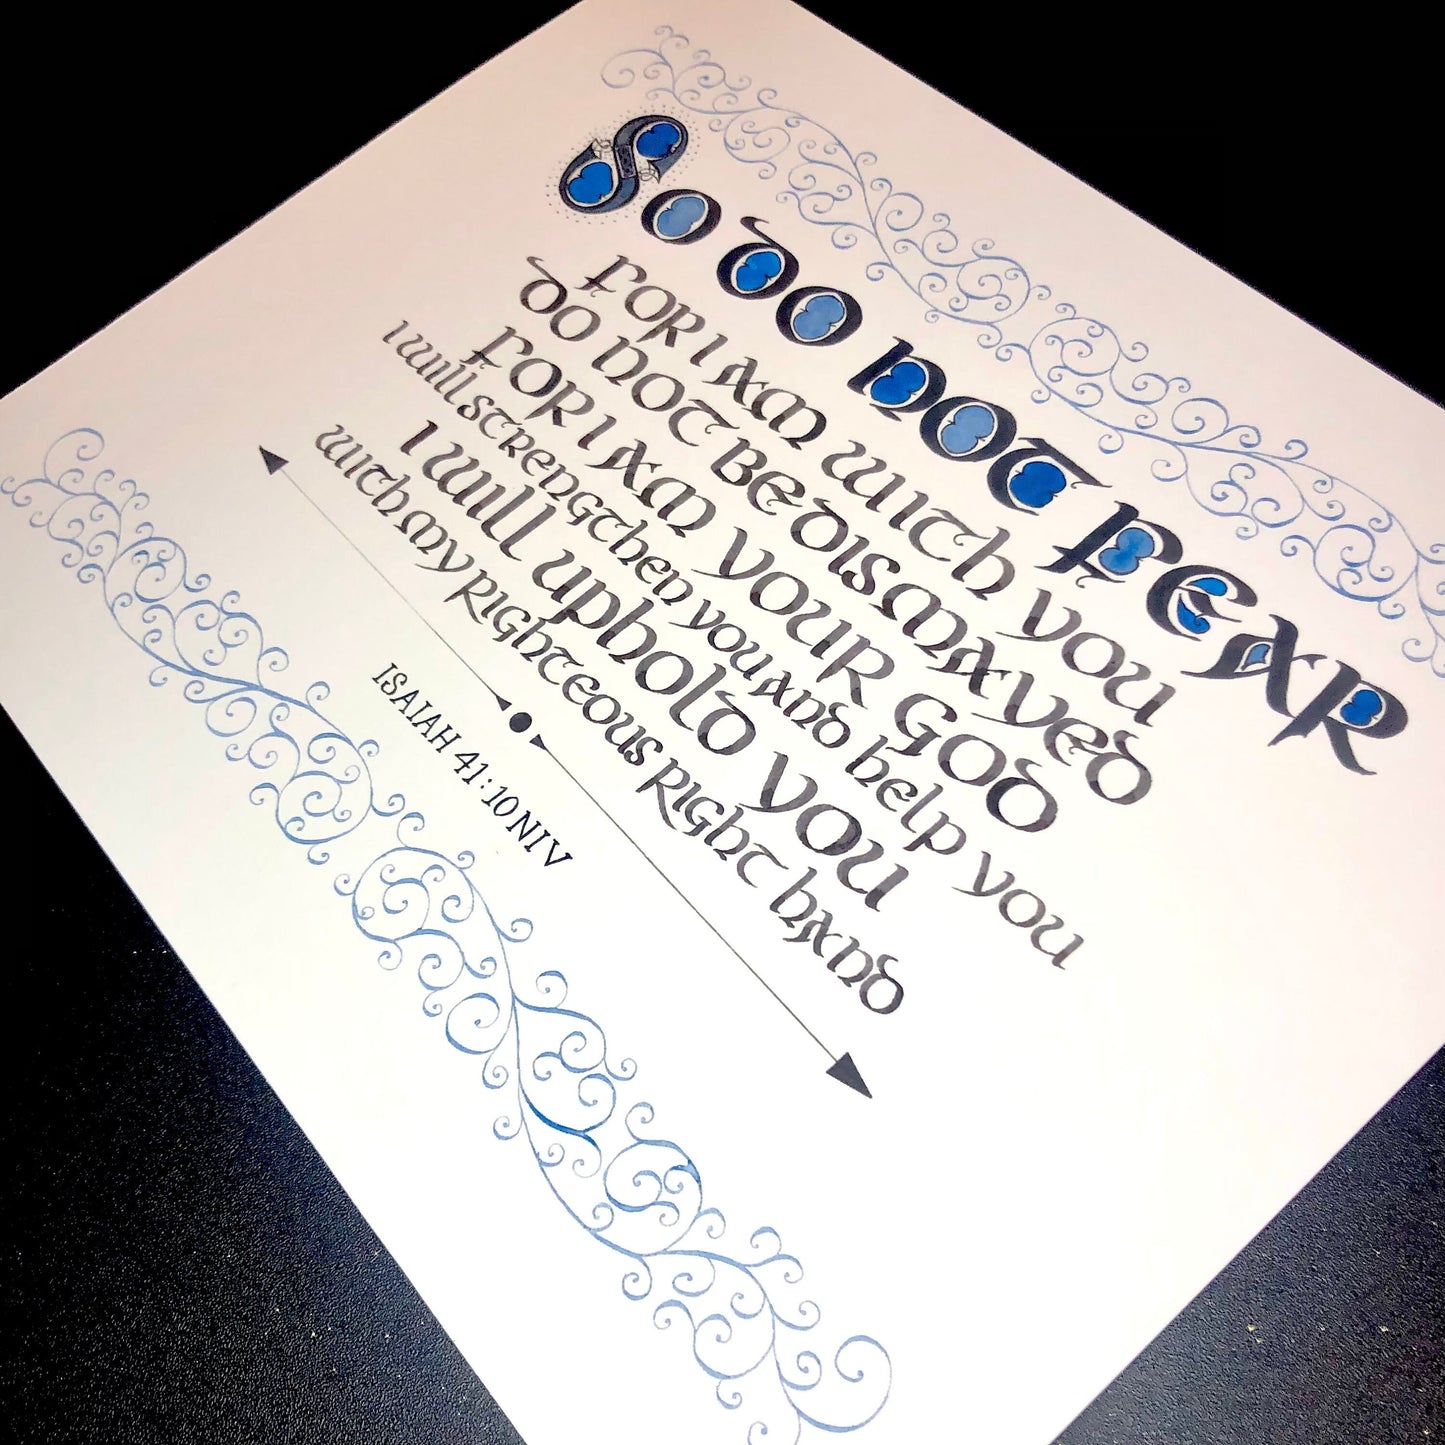 So do not fear
for I am with you
do not be dismayed
for I am your God
I will strengthen you and help you
I will uphold you
with my righteous right hand
ISAIAH 41:10 NIV